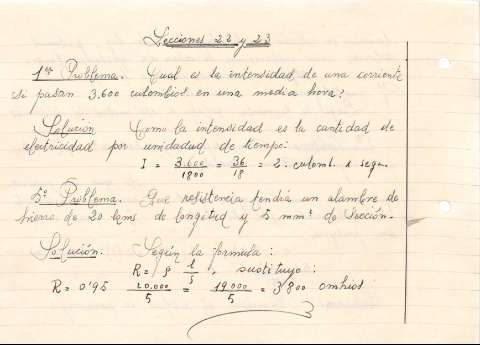 Lecciones 22 y 23
1er Problema. Cual es la intensidad de una corriente
si pasan 3.600 culombios en una media hora?
Solucion Como la intensidad es la cantidad de
electricidad por unidadad de tiempo:
I = 3.600 / 1800 = 36 / 18 = 2. culomb. x segu.
5º Problema. Que resistencia tendra un alambre de
hierro de 20 kms de longitud y 5 mm² de Sección.
Solución. Según la formula:
R = ρ l / s, sustituyo:
R = 0'95 20.000 / 5 = 19.000 / 5 = 3800 omhios